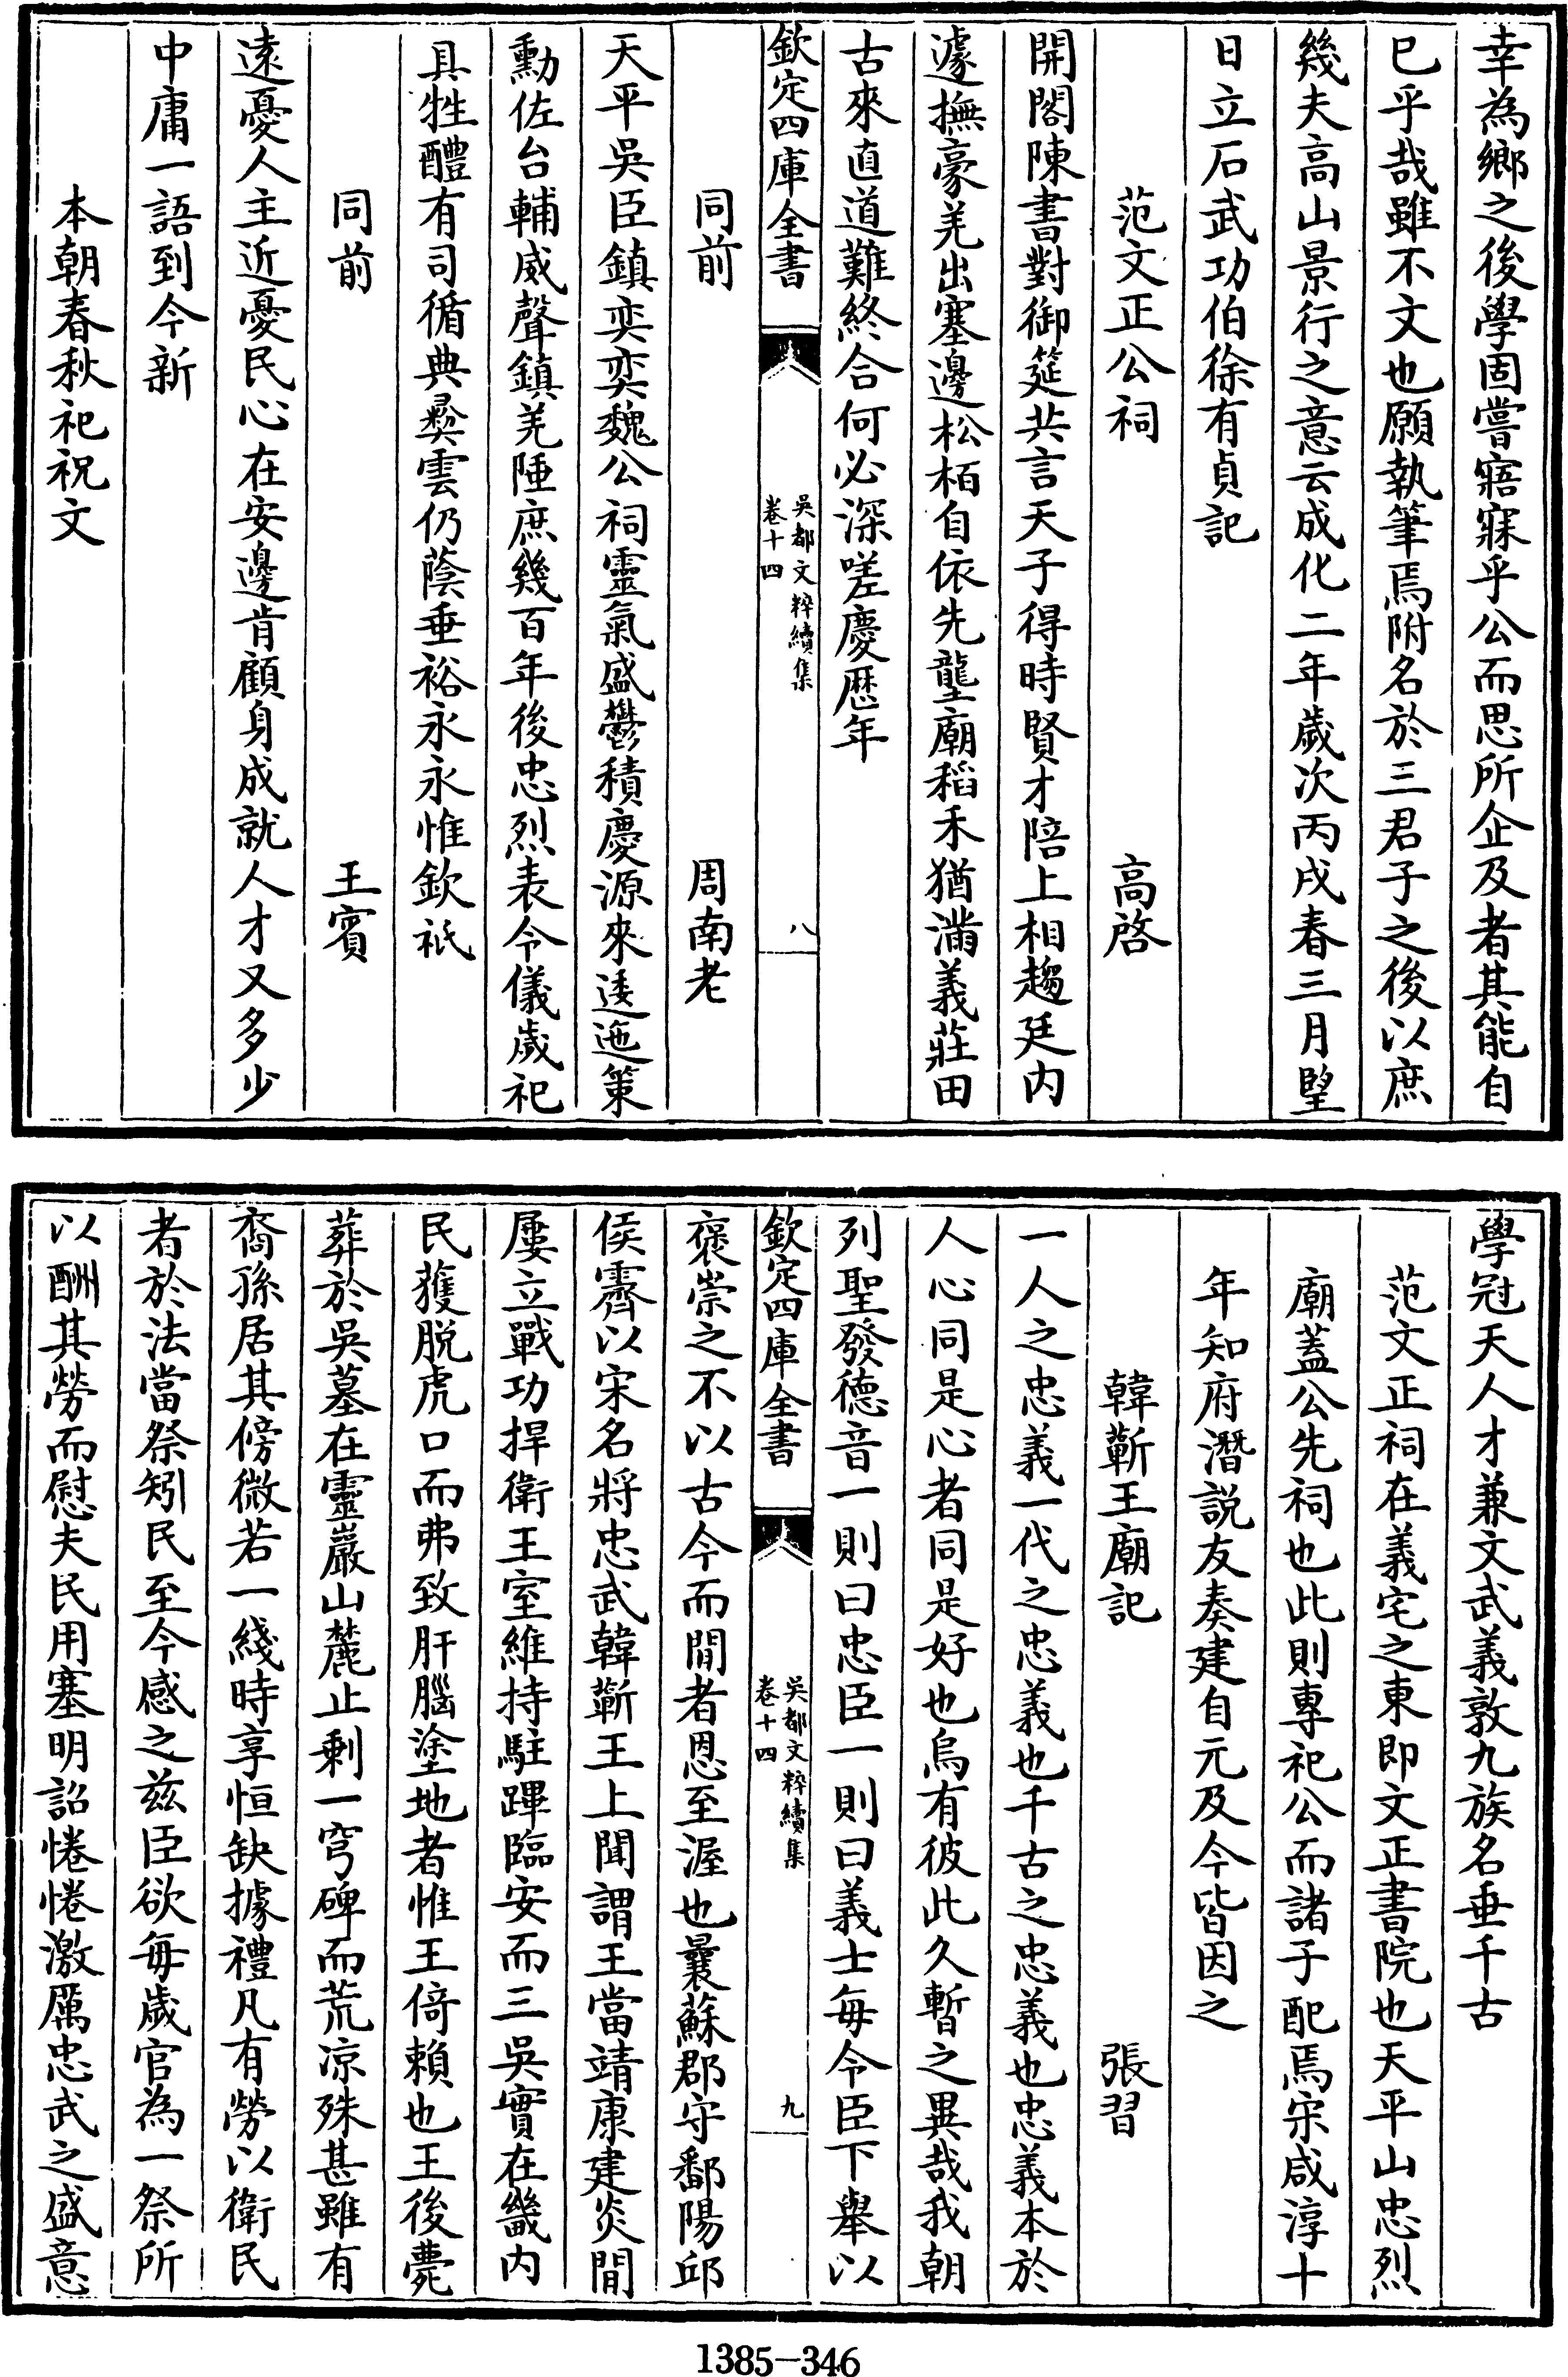 幸為鄉之後學固嘗寤寐乎公而思所企及者其能自
已乎哉雖不文也願執筆焉附名於三君子之後以庶
幾夫高山景行之意云成化二年歲次丙戌春三月望
日立石武功伯徐有貞記
范文正公祠 高啓
開閣陳書對御筵共言天子得時賢才陪上相趨廷内
遽撫豪羌出塞邊松栢自依先壟廟稻禾猶滿義莊田
古來直道難終合何必深嗟慶歴年
欽定四庫全書 吳都文粹續集 卷十四 八
同前 周南老
天平吳臣鎮奕奕魏公祠靈氣盛鬱積慶源來逶迤策
勳佐台輔威聲鎮羌陲庶幾百年後忠烈表令儀歲祀
具牲醴有司循典彞雲仍蔭垂裕永永惟欽祇
同前 王賓
遠憂人主近憂民心在安邊肯顧身成就人才又多少
中庸一語到今新
本朝春秋祀祝文
學冠天人才兼文武義敦九族名垂千古
范文正祠在義宅之東即文正書院也天平山忠烈
廟蓋公先祠也此則專祀公而諸子配焉宋咸淳十
年知府潛説友奏建自元及今皆因之
韓蘄王廟記 張習
一人之忠義一代之忠義也千古之忠義也忠義本於
人心同是心者同是好也烏有彼此久暫之異哉我朝
列聖發德音一則曰忠臣一則曰義士每令臣下舉以
欽定四庫全書 吳都文粹續集 卷十四 九
褒崇之不以古今而間者恩至渥也曩蘇郡守鄱陽邱
侯霽以宋名將忠武韓蘄王上聞謂王當靖康建炎間
屢立戰功捍衛王室維持駐蹕臨安而三吳實在畿内
民獲脱虎口而弗致肝腦塗地者惟王倚賴也王後薨
葬於吳墓在靈巖山麓止剩一穹碑而荒凉殊甚雖有
裔孫居其傍微若一綫時享恒缺據禮凡有勞以衛民
者於法當祭矧民至今感之兹臣欲每歲官為一祭所
以酬其勞而慰夫民用塞明詔惓惓激厲忠武之盛意
1385-346